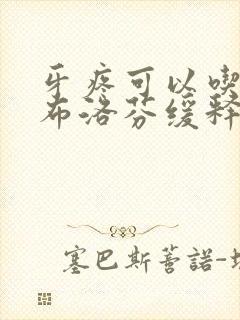 牙疼可以喫
布洛芬缓释
塞巴斯蒂諾-